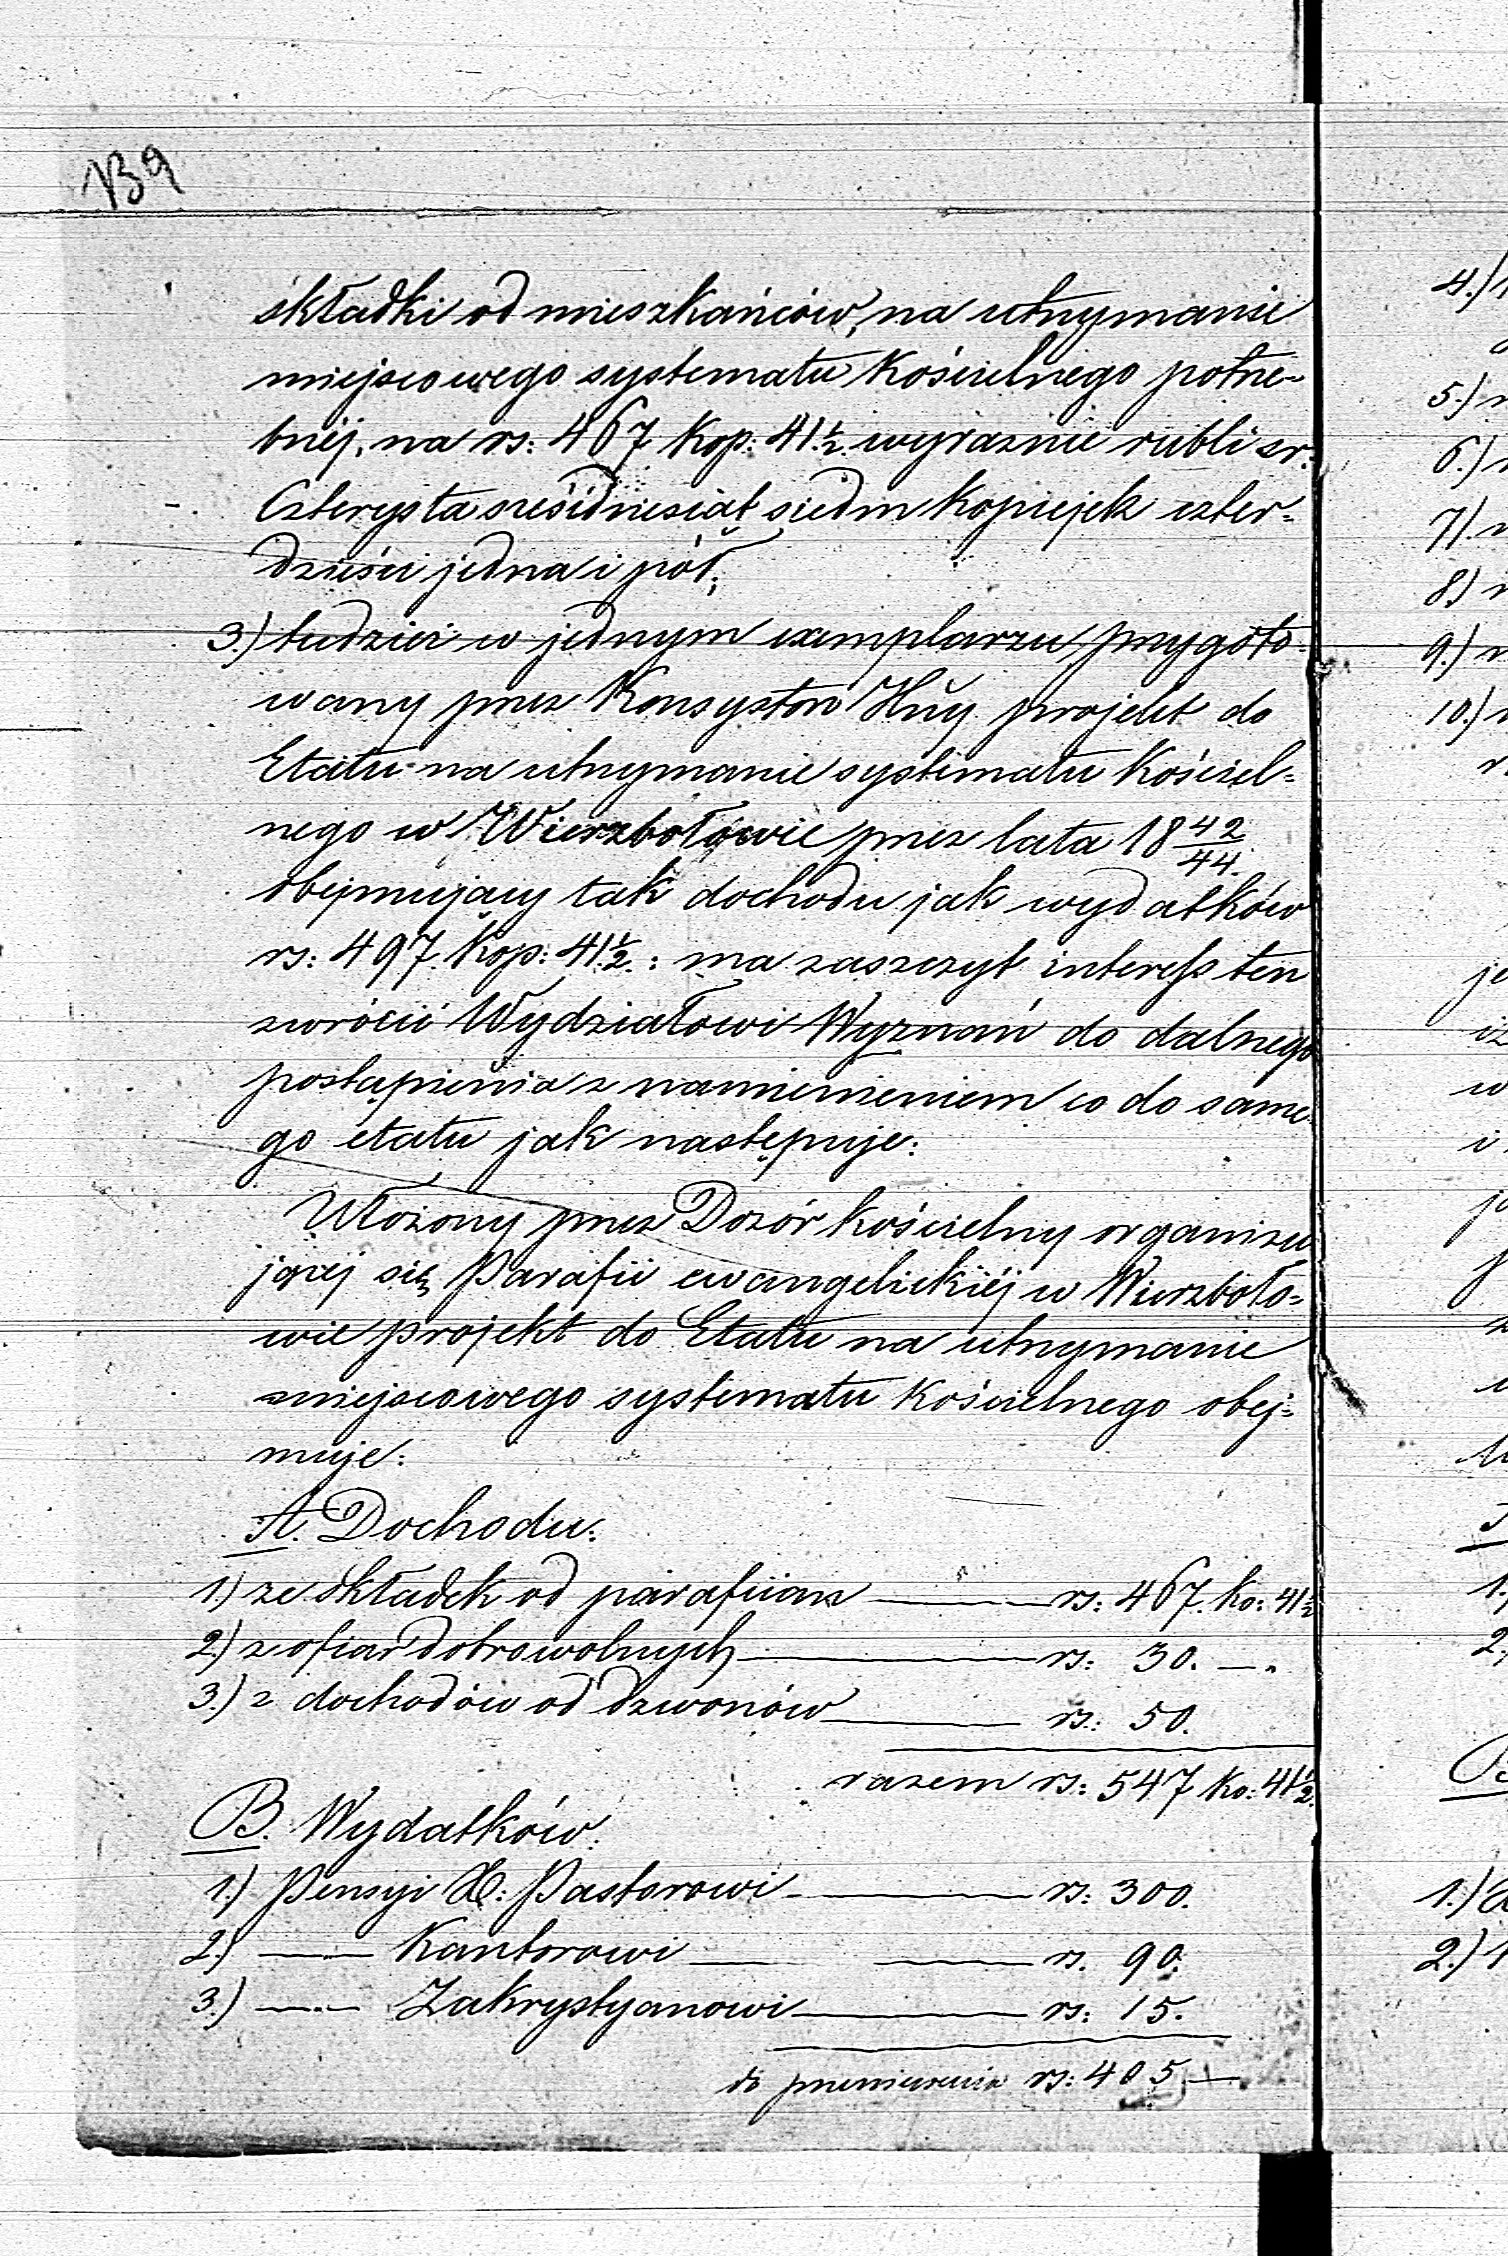 139
składki od mieszkańców, na utrzymanie
miejscowego systematu Kościelnego potrze-
bnéj, na rs: 467 Kop: 41.½. wyraźnie rubli sr:
Czterysta sześćdziesiąt siedm Kopiejek czter=
dzieści jedna i pół;
3.) tudzież w jednym exemplarzu przygoto=
wany przez Konsystorz Jlny projekt do
Etatu na utrzymanie systematu Kościel=
nego w Wierzbołowie przez lata 18 42/44.
obejmujący tak dochodu jak wydatków
rs: 497. Kop: 41½.: ma zaszczyt interess ten
zwrócić Wydziałowi Wyznań do dalnego
postąpienia z namienieniem co do same
go etatu jak następuje:
Ułożony przez Dozór kościelny organizu
jącéj się Parafii ewangelickiéj w Wierzboło=
wie projekt do Etatu na utrzymanie
miejscowego systematu Kościelnego obej=
muje:
A. Dochodu:
1.) ze składek od parafiian rs: 467. Ko: 41½
2.) z ofiar dobrowolnych rs: 30. — .
3.) z dochodów od dzwonów rs: 50.
razem rs: 547 Ko: 41½.
B. Wydatków.
1.) Pensyi X: Pastorowi rs: 300.
2.) —— Kantorowi rs. 90.
3.) —— Zakrystyanowi rs: 15.
do przeniesienia rs: 405 —
4.)
5.)
6.)
7.)
8.)
9.)
10.)
1.)
2.)